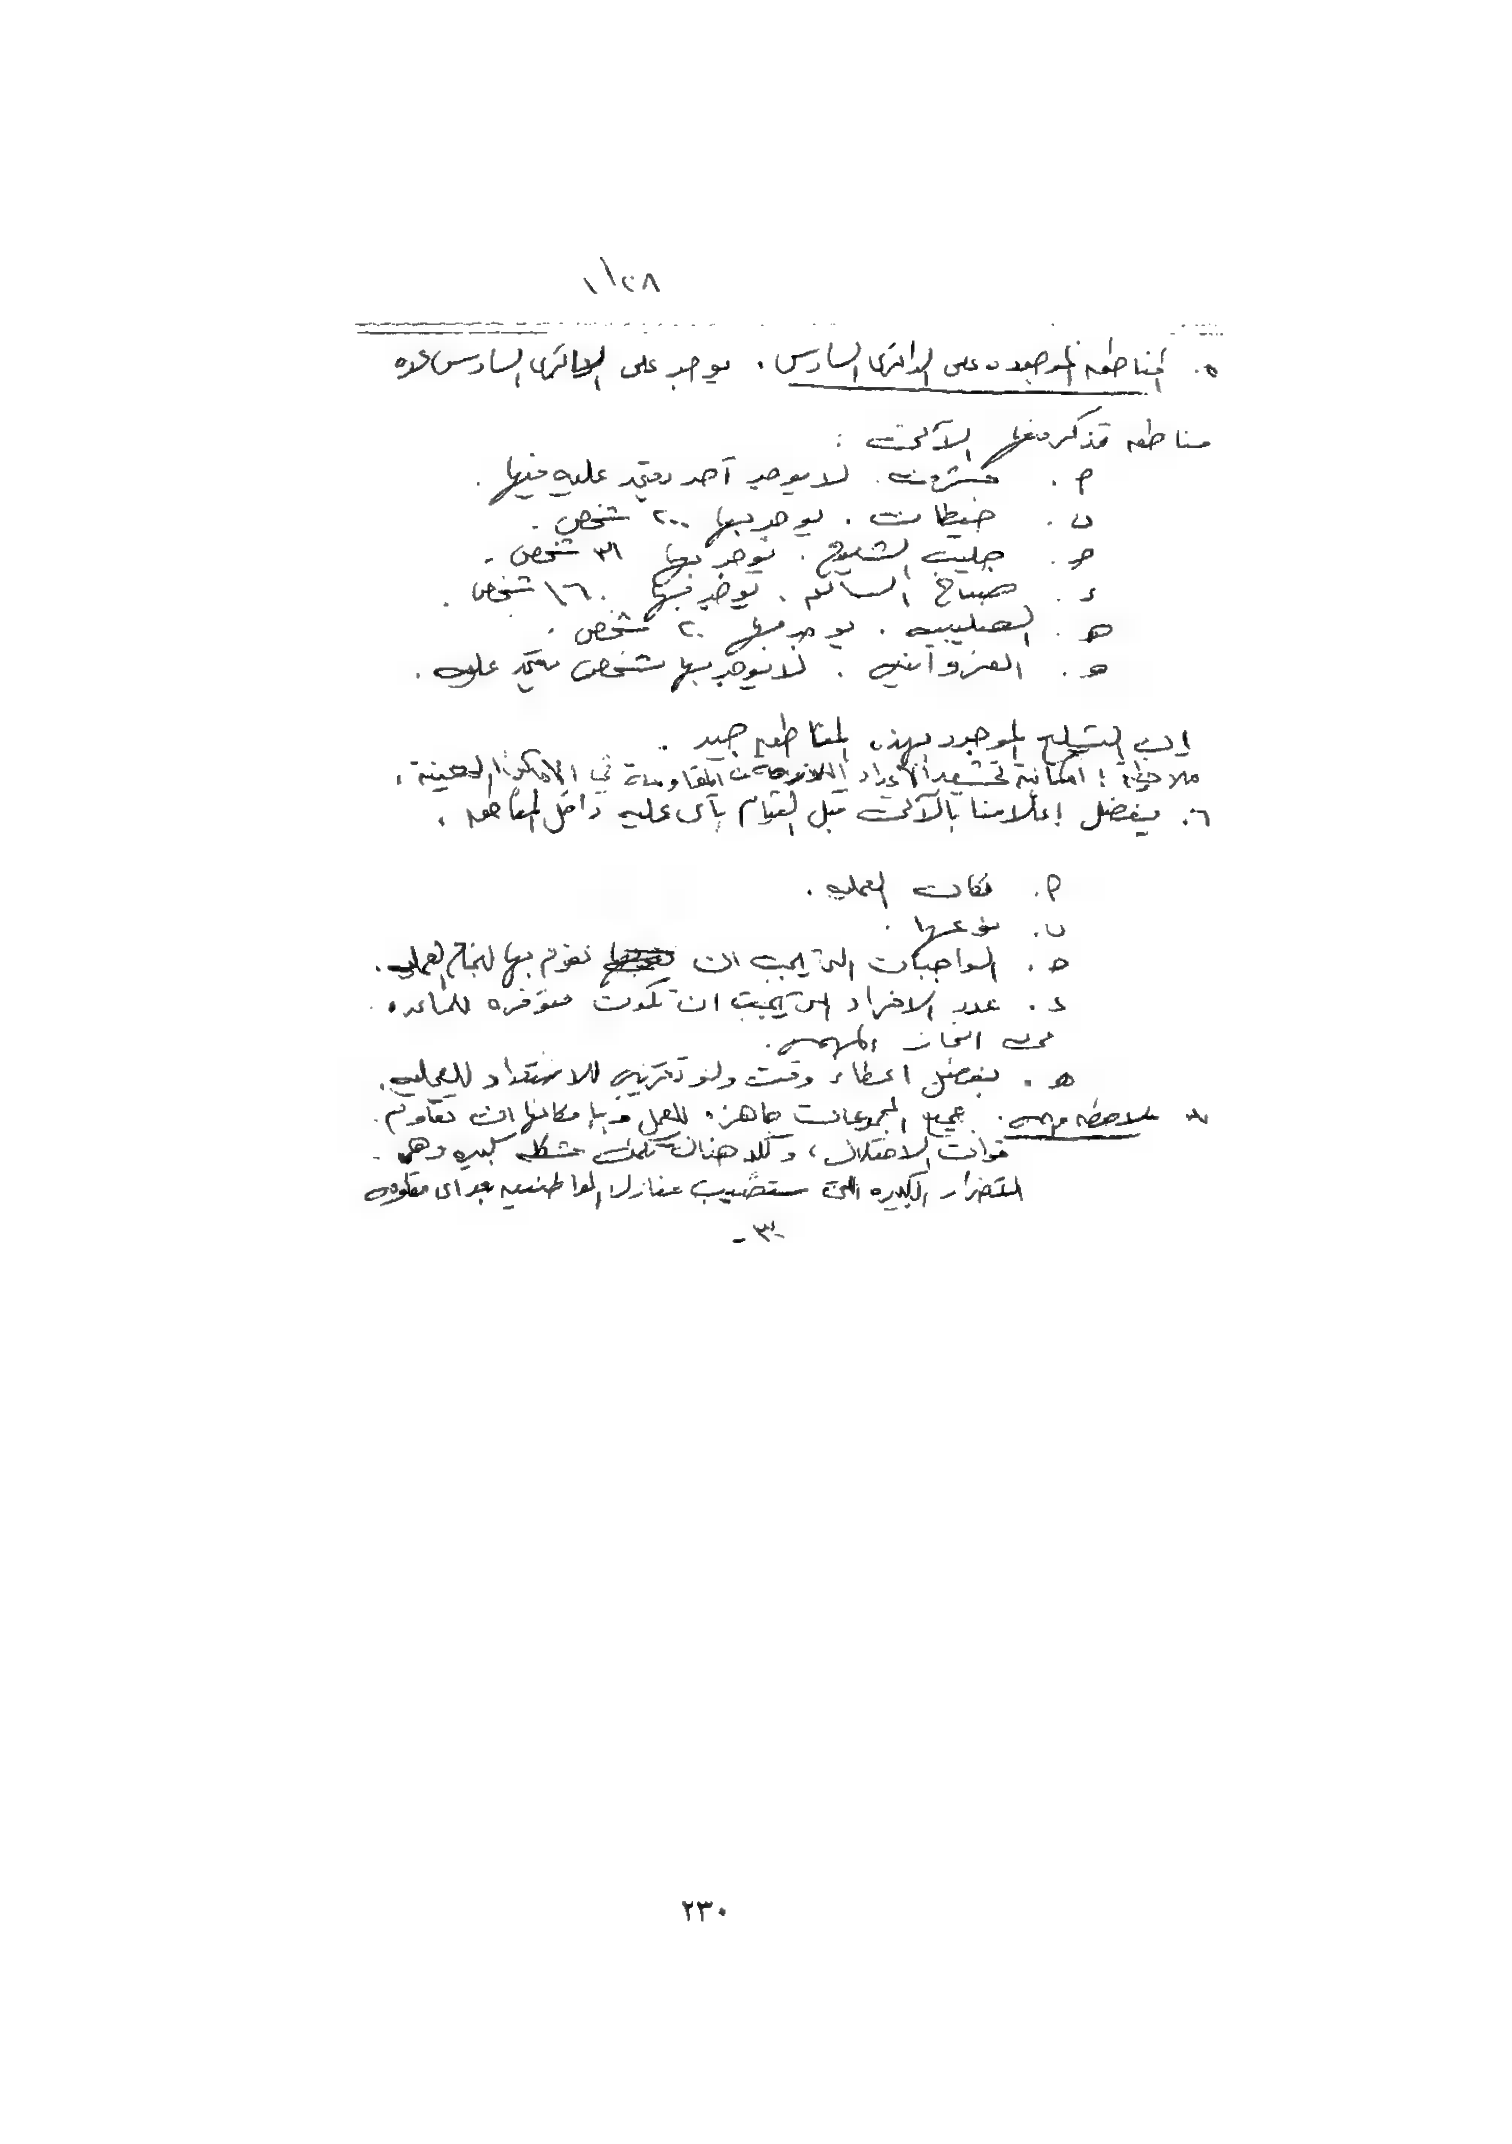 ١/٢٨
٥. المناطق الموجوده على الدائرى السادس. يوجد على الدائرى السادس عده
مناطق نذكر منها الآتى :
م. مشرف. لا يوجد أحد يعتمد عليه فيها.
ب. خيطان. يوجد بها ٢٠٠ شخص.
ج. جليب الشيوخ. يوجد بها ٣١ شخص.
د. صباح السالم. يوجد فيها ١٦٠ شخص.
هـ. الصليبيه. يوجد فيها ٢٠ شخص.
و. الفروانيه. لا يوجد بها شخص يعتمد عليه.
إن التسليح الموجود بهذه المناطق جيد.
ملاحظة : امكانية تحشيد الأعداد اللازمة من المقاومة في الاماكن المعينة.
٦. يفضل إعلامنا بالآتى قبل القيام بأى عمليه داخل المناطق.
م. مكان العمليه.
ب. نوعها.
ج. الواجبات التى يجب ان نقوم بها لنجاح العمليه.
د. عدد الافراد التى يجب ان تكون متوفره للمساعده
فى انجاز المهمه.
هـ. يفضل اعطاء وقت ولو تقريبى للاستعداد للعمليه.
ملاحظه مهمه. جميع المجموعات جاهزه للعمل وبإمكانها ان تقاوم
قوات الاحتلال، ولكن هناك تكمن مشكله كبيره وهى
الضرار الكبيره التى ستصيب منازل المواطنين بعد اى مقاومه
-٣-
٢٣٠